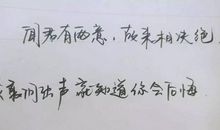 闻君有两意，故来相决绝
声就知道你会后悔